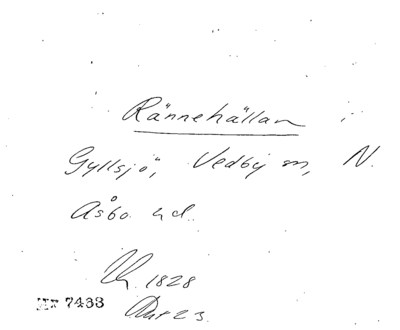 Rännehällan i
Gyllsjö, Vedby sn, N.
Åsbo hd.
Uh. 1828
7433
23.